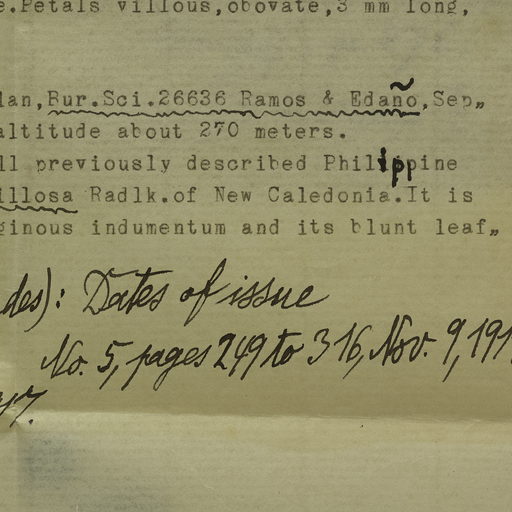 e.Petals villous,obovate,3 mm long,
lan,Bur.Sci.26636 Ramos & Edaño,Sep„
altitude about 270 meters.
ll previously described Philippine
illosa Radlk.of New Caledonia.It is
ginous indumentum and its blunt leaf„
des): Dates of issue
No. 5, pages 249 to 316, Nov. 9, 191
17.